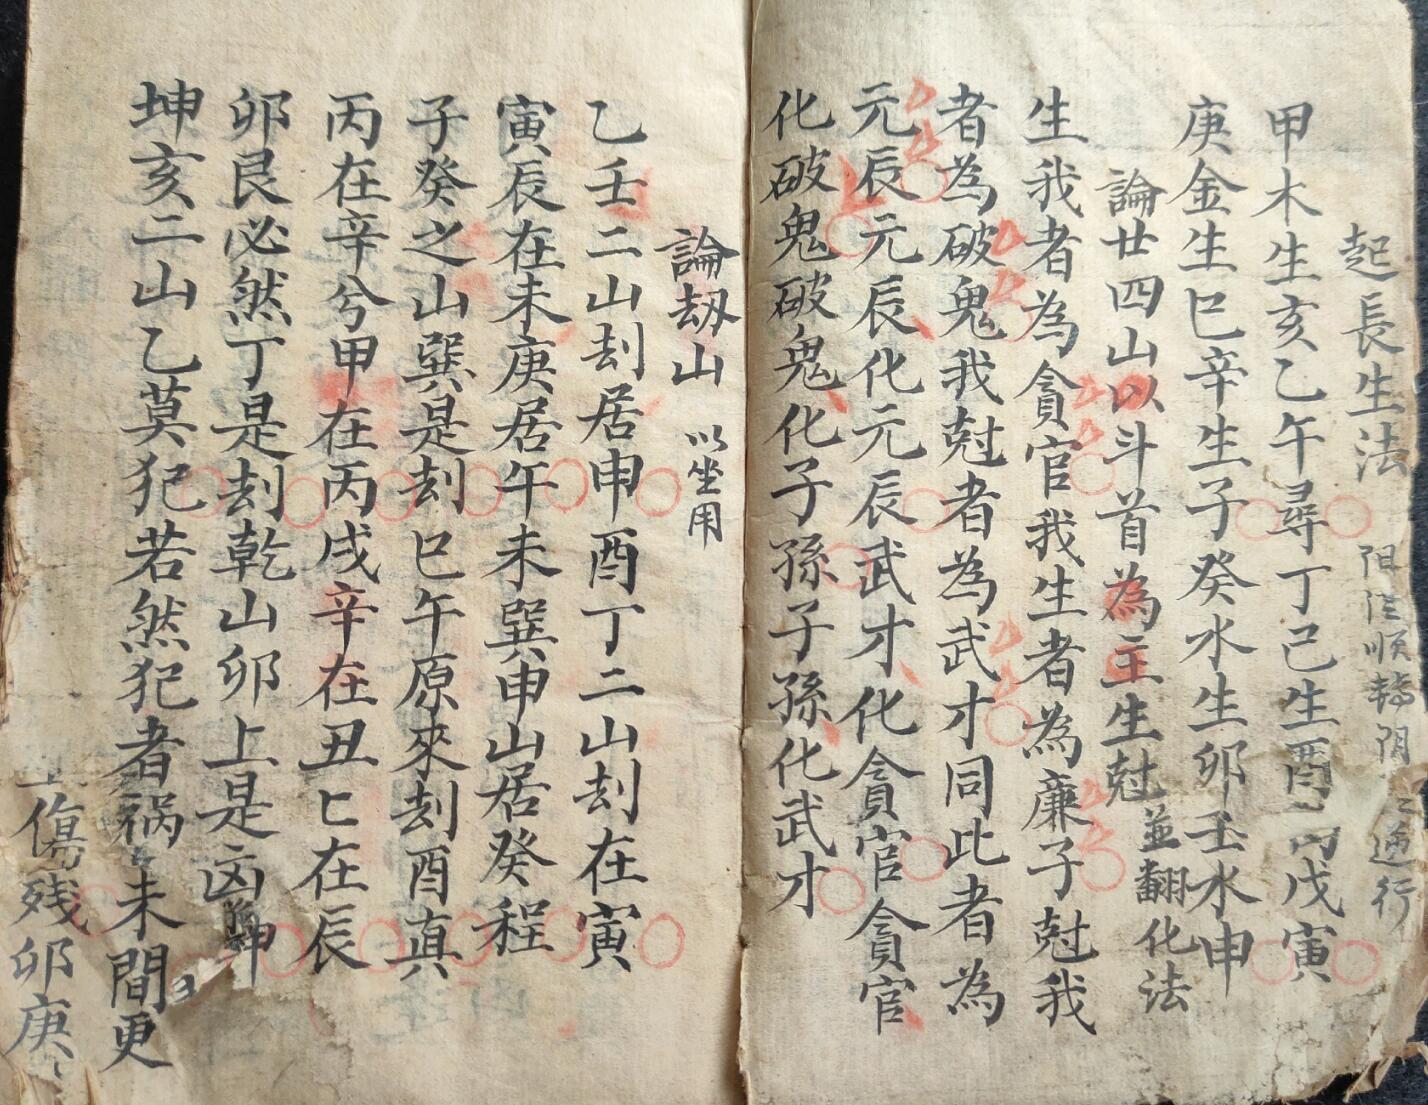 起長生法 阳 順 阴 逆行
甲木生亥乙午尋丁己生酉丙戊寅
庚金生巳辛生子癸水生卯壬水申
論廿四山以斗首為主生尅並翻化法
生我者為貪官我生者為廉子尅我
者為破鬼我尅者為武才同此者為
元辰元辰化元辰武才化貪官貪官
化破鬼破鬼化子孫子孫化武才
論刼山 以坐用
乙壬二山刦居申酉丁二山刦在寅
寅辰在未庚居午未巽申山居癸程
子癸之山巽是刦巳午原來刦酉真
丙在辛兮甲在丙戌辛在丑匕在辰
卯艮必然丁是刦乾山卯上是凶 坤
坤亥二山乙莫犯若然犯者祸未間更
傷残卯庚